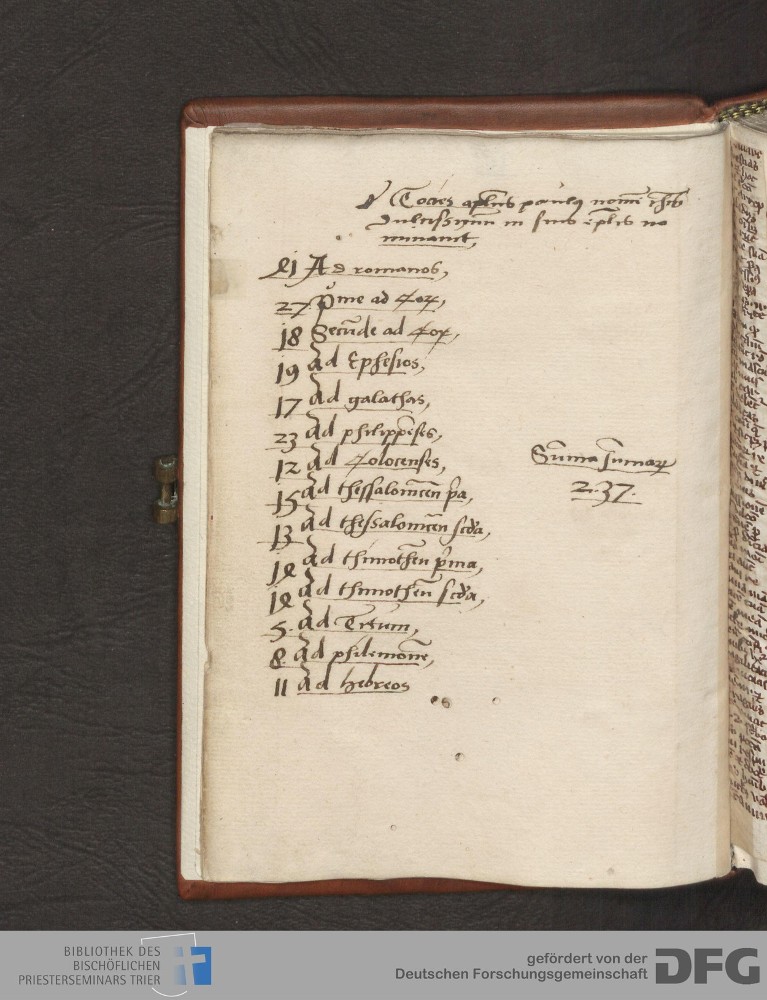 Tocies apl̄us paulꝯ nomē ih̄s
dulcissimū in suis ep̄lis no
minauit,
Ad romanos,
27 P̄me ad Corꝝ,
18 Secūde ad Corꝝ,
19 Ad Ephesios,
17 Ad galathas,
23 Ad philippēses,
12 Ad Colocenses,
15 Ad thessalonicen p̄a,
13 Ad thessalonicen scd̄a,
Ad thimotheū p̄ma,
Ad thimotheū scd̄a,
5 Ad Titum,
8 Ad philemonē,
11 Ad hebreos
Sūma sūmarꝝ
237.
BIBLIOTHEK DES
BISCHÖFLICHEN
PRIESTERSEMINARS TRIER
gefördert von der
Deutschen Forschungsgemeinschaft
DFG